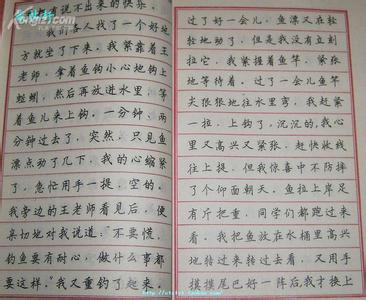 有说不出来的快乐。
我们各人找了一个好地
方就坐了下来。我紧靠着王
老师，拿着鱼钩小心地钩上
蛆蚓，然后再放进水里，等
着鱼儿来上钩。一分钟、两
分钟过去了，突然，只见鱼
漂点动了几下，我的心缩紧
了，急忙用手一提，空的。
我旁边的王老师看见后，便
亲切地对我说道：“不要慌，
钓鱼要有耐心，做什么事都
要这样。”我又重钓了起来。
过了好一会儿，鱼漂又在轻
轻地动了，但是我没有立刻
拉它，我紧握着鱼竿，紧张
地等待着。过了一会儿鱼竿
尖狠狠地往水里弯，我赶紧
一拉，上钩了，沉沉的，我心
里又高兴又紧张，赶快收线
往上提，但我惊喜中不防摔
了个仰面朝天。鱼拉上岸足
有斤把重，同学们都跑过来
看。我把鱼放在水桶里高兴
地转过来转过去看，又用手
摸摸尾巴好一阵后，我才换上